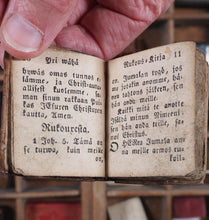 Pri wähä
hywäs omas tunnos e-
lämäm, ja Christi-autu-
allisest kuolemme,
man sinun rakkaan Poi-
kas JEsuxen Christuxen
kautta, Amen.
Rukouxesta.
1 Joh. 5. Tämä on
se turwo, kuin meille
on,
Rukous-Kirja 11
on Jumalan tygö, jos
me jotakin anomme, hä-
nen tahtons jälken, niin
hän anda meille.
Kaikki mitä te anotte
Isäldä minun Nimeeni
sen hän anda teille, sa-
noi Christus.
HERra Jumala an-
na meille armos ru-
koil-